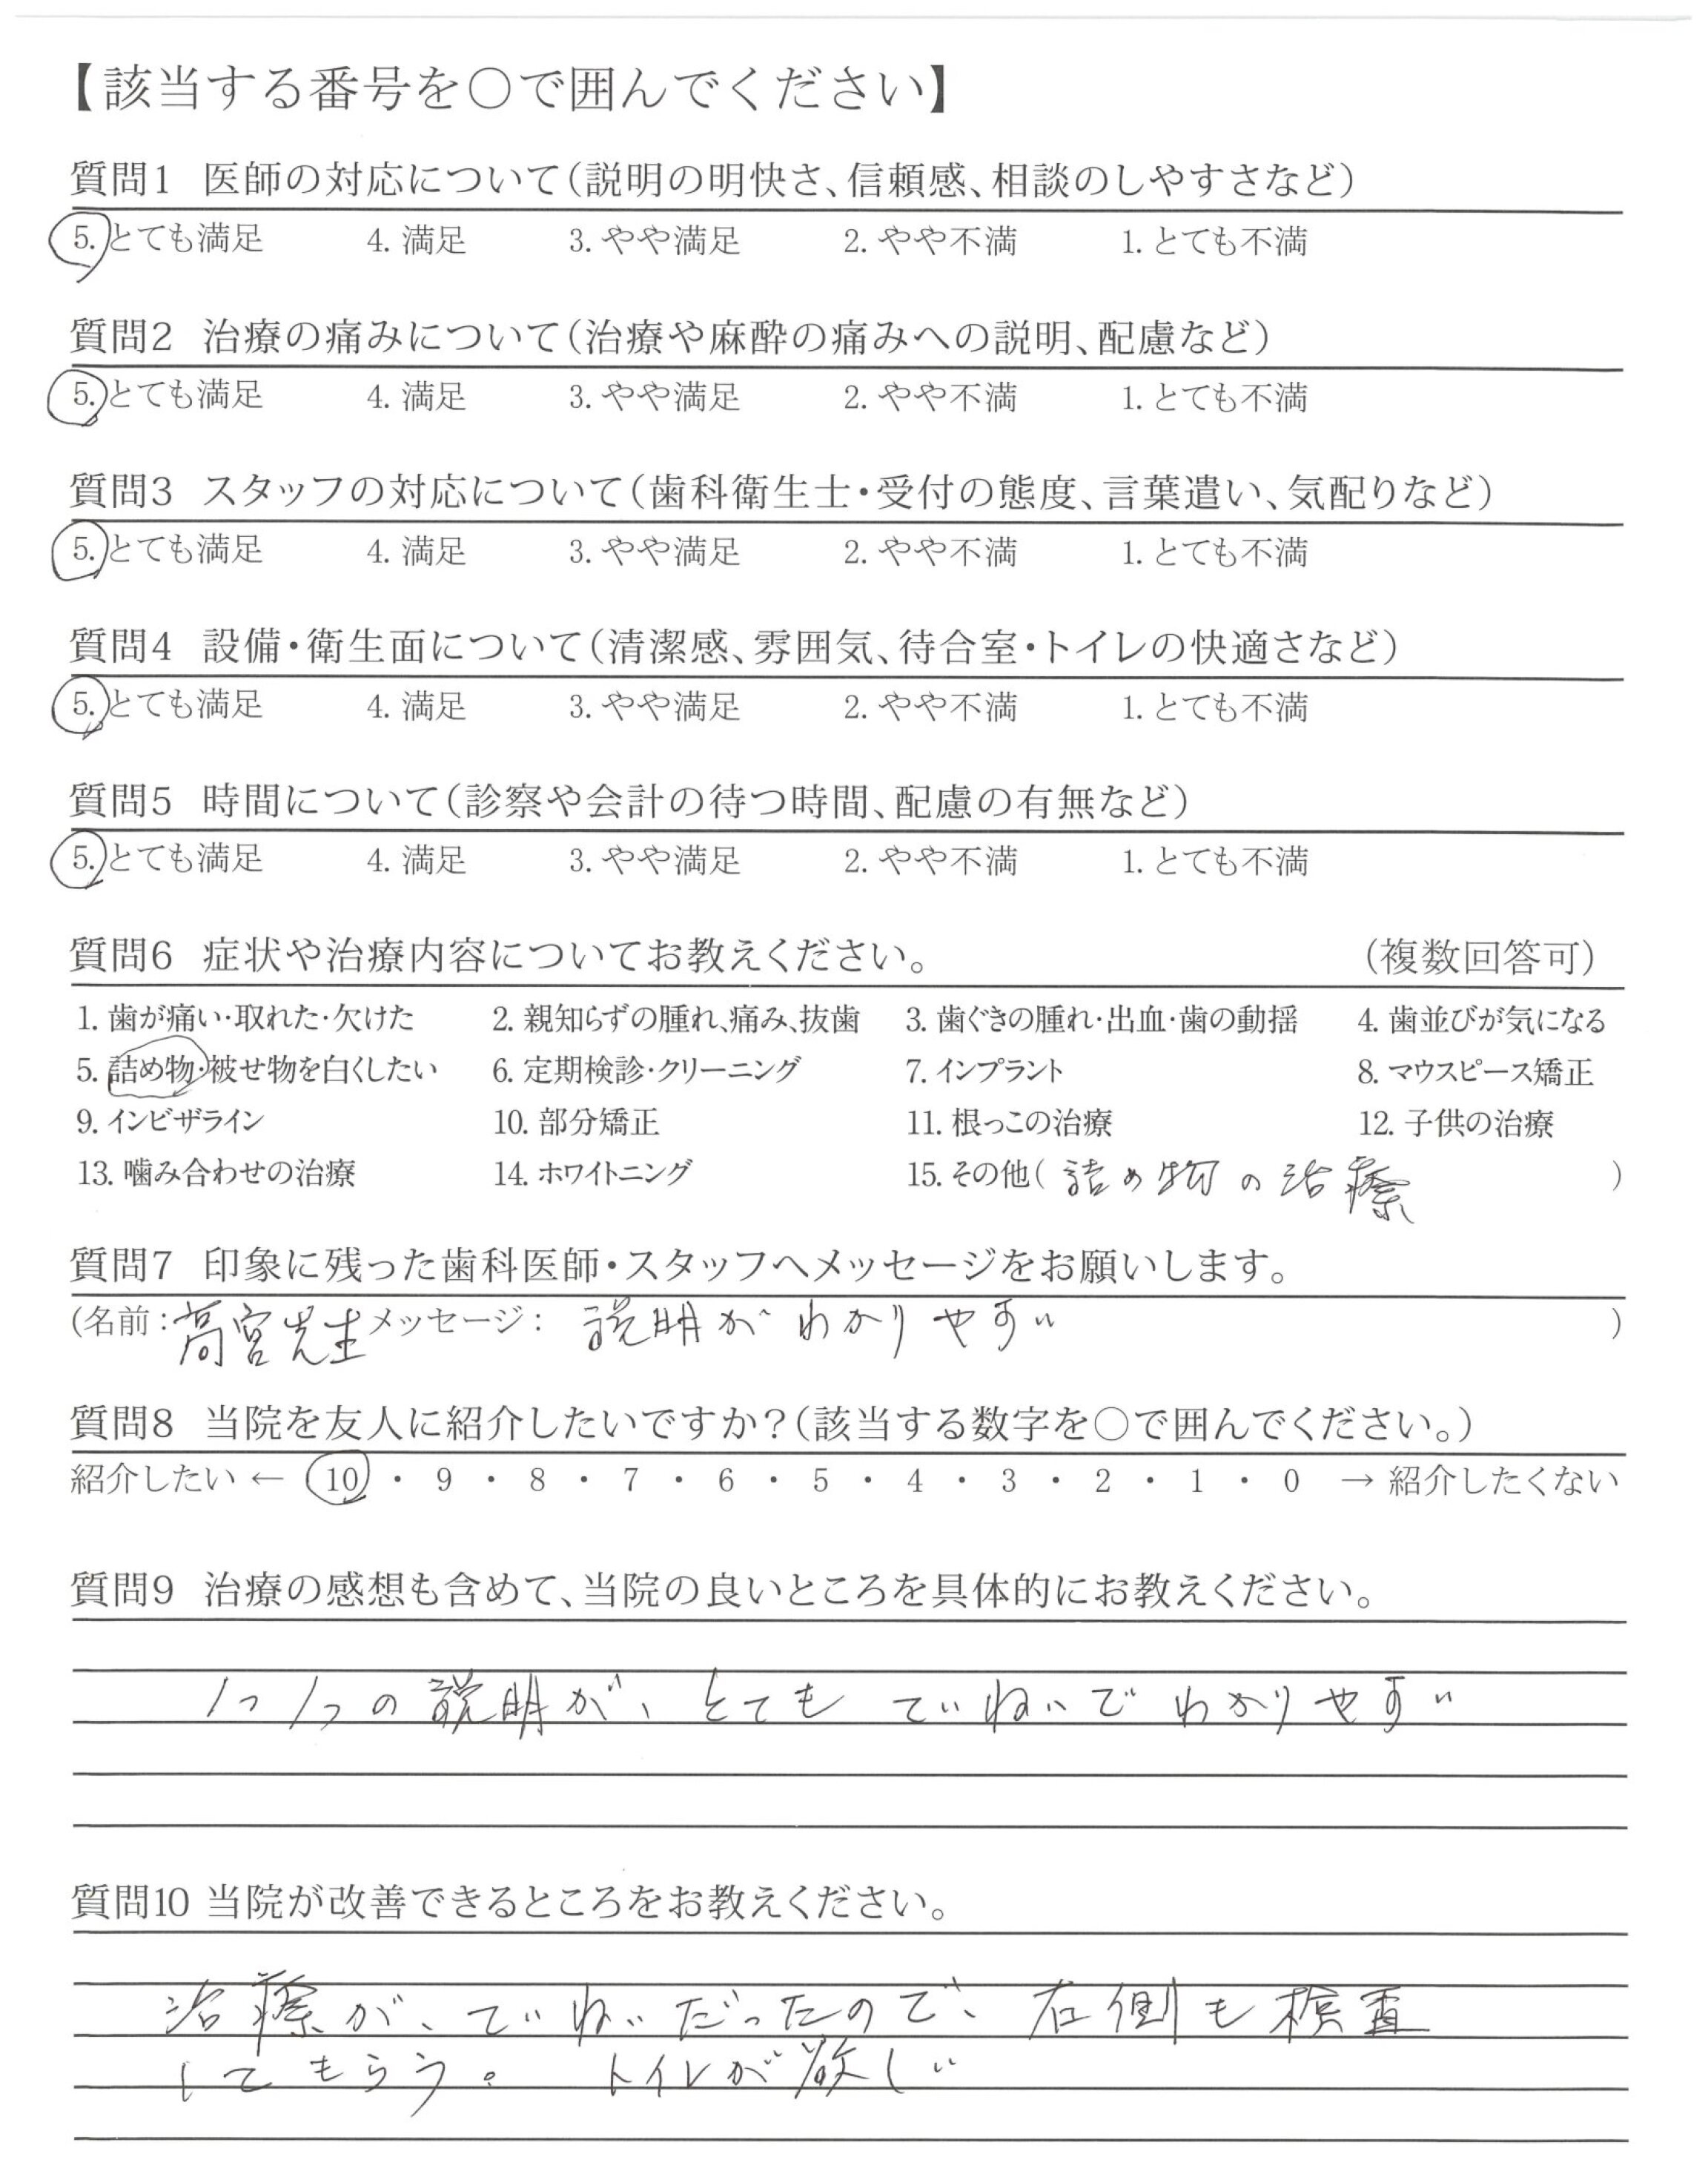 【該当する番号を○で囲んでください】
質問1 医師の対応について(説明の明快さ、信頼感、相談のしやすさなど)
5. とても満足 4. 満足 3. やや満足 2. やや不満 1. とても不満
質問2 治療の痛みについて(治療や麻酔の痛みへの説明、配慮など)
5. とても満足 4. 満足 3. やや満足 2. やや不満 1. とても不満
質問3 スタッフの対応について(歯科衛生士・受付の態度、言葉遣い、気配りなど)
5. とても満足 4. 満足 3. やや満足 2. やや不満 1. とても不満
質問4 設備・衛生面について(清潔感、雰囲気、待合室・トイレの快適さなど)
5. とても満足 4. 満足 3. やや満足 2. やや不満 1. とても不満
質問5 時間について(診察や会計の待つ時間、配慮の有無など)
5. とても満足 4. 満足 3. やや満足 2. やや不満 1. とても不満
質問6 症状や治療内容についてお教えください。 (複数回答可)
1. 歯が痛い・取れた・欠けた 2. 親知らずの腫れ、痛み、抜歯 3. 歯ぐきの腫れ・出血・歯の動揺 4. 歯並びが気になる
5. 詰め物・被せ物を白くしたい 6. 定期検診・クリーニング 7. インプラント 8. マウスピース矯正
9. インビザライン 10. 部分矯正 11. 根っこの治療 12. 子供の治療
13. 噛み合わせの治療 14. ホワイトニング 15. その他( 詰め物の治療 )
質問7 印象に残った歯科医師・スタッフへメッセージをお願いします。
(名前:高宮先生 メッセージ: 説明がわかりやすい )
質問8 当院を友人に紹介したいですか?(該当する数字を○で囲んでください。)
紹介したい ← 10 ・ 9 ・ 8 ・ 7 ・ 6 ・ 5 ・ 4 ・ 3 ・ 2 ・ 1 ・ 0 → 紹介したくない
質問9 治療の感想も含めて、当院の良いところを具体的にお教えください。
1つ1つの説明が、とてもていねいでわかりやすい
質問10 当院が改善できるところをお教えください。
治療が、ていねいだったので、右側も検査
してもらう。 トイレが欲しい